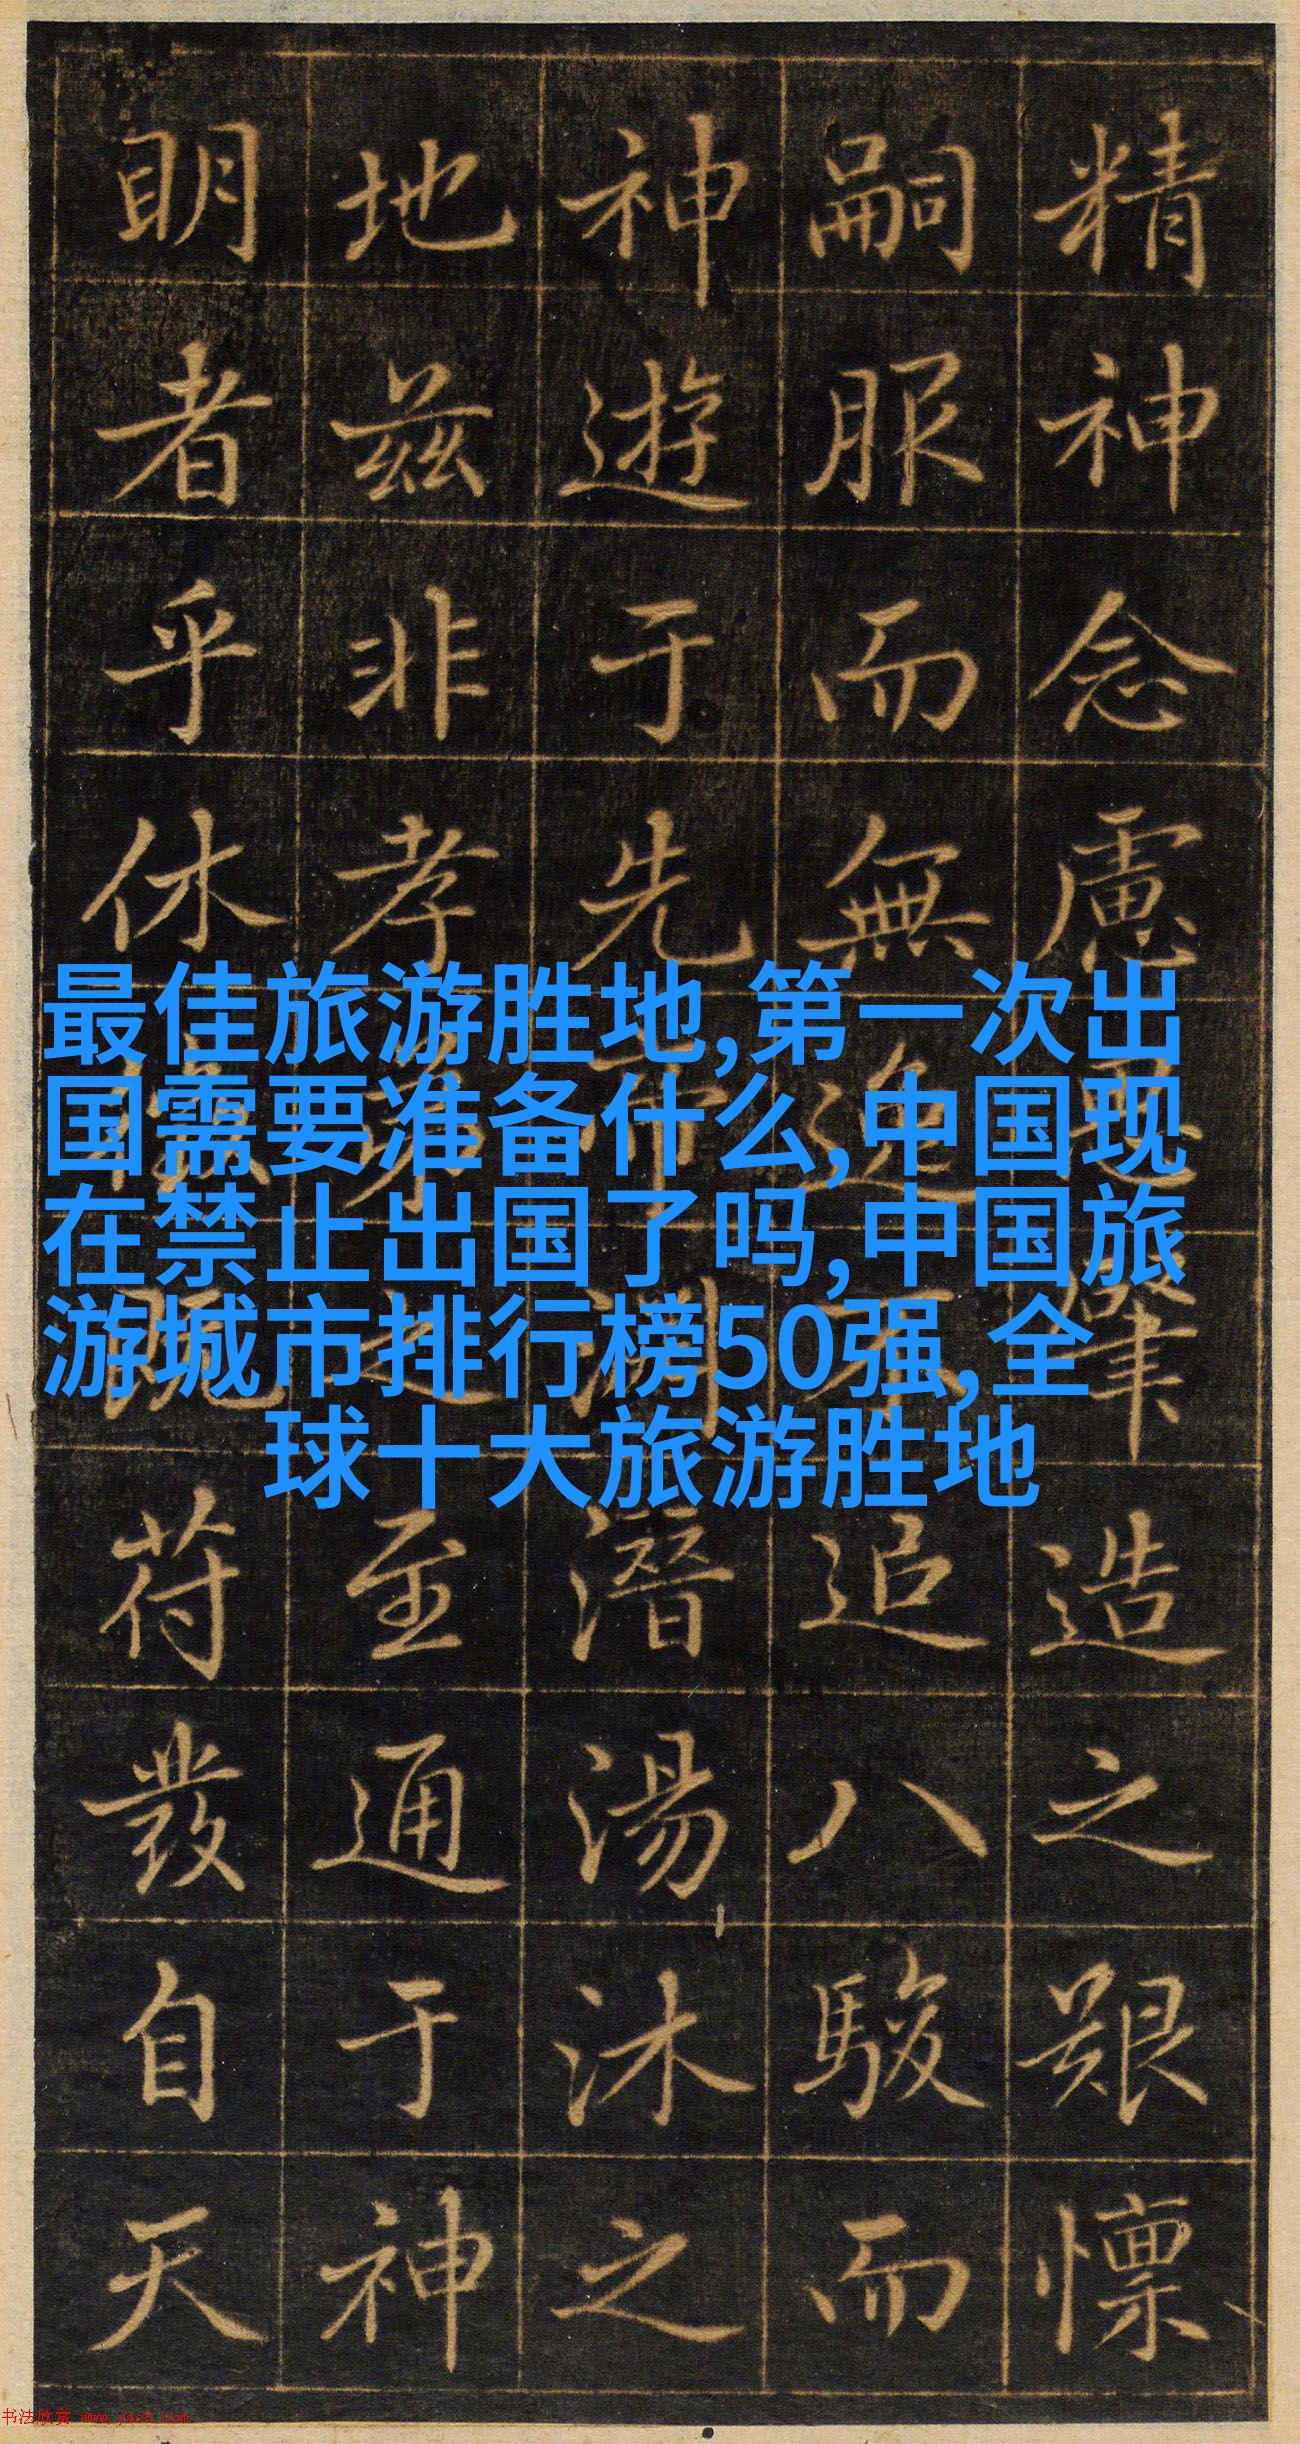 精神念慮肇造之艱懍
嗣服而無逸追八駿而
神遊于先帝淵潛湯沐之
地兹非孝弟之至通于神
明者乎休既苻發自天
最佳旅游胜地,第一次出
国需要准备什么,中国现
在禁止出国了吗,中国旅
游城市排行榜50强,全
球十大旅游胜地
书法欣赏 www.yac8.com